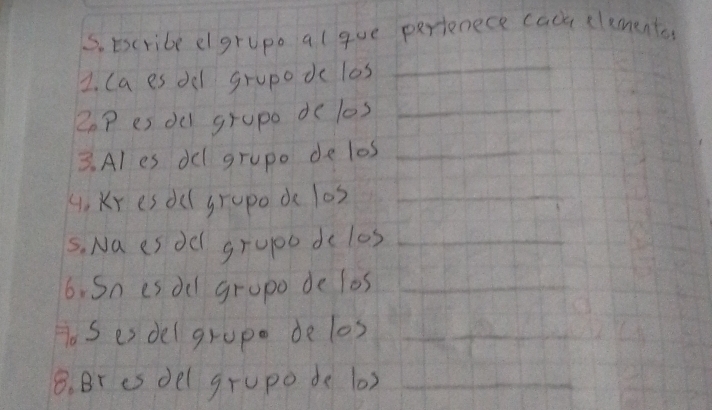 5. Escribe el grupo al que pertenece cada elemento.
1. Ca es del grupo de los
2. P es del grupo de los
3. Al es del grupo de los
4. Kr es del grupo de los
5. Na es del grupo de los
6. Sn es del grupo de los
7. S es del grupo de los
8. Br es del grupo de los